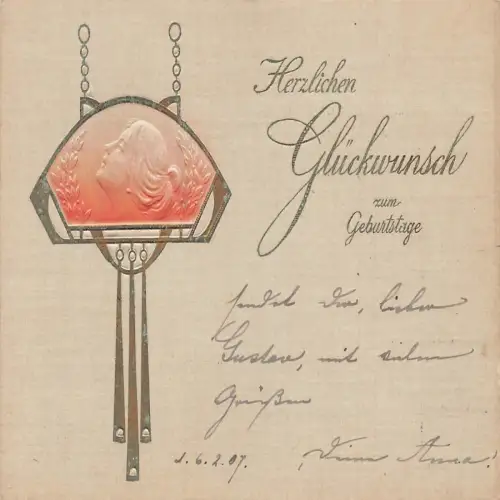 Herzlichen
Glückwunsch
zum
Geburtstage
sendet Dir, lieber
Gustav, mit vielen
Grüßen
d. 6.2.07.
Deine Anna.